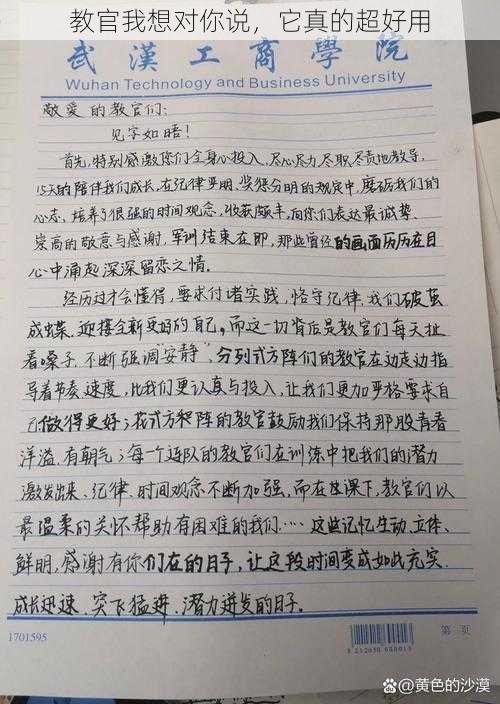 教官我想对你说，它真的超好用
武漢工商學院
Wuhan Technology and Business University
敬爱的教官们:
见字如晤!
首先,特别感激您们全身心投入、尽心尽力、尽职尽责地教导,
15天的陪伴我们成长,在纪律严明、奖惩分明的规定中,磨砺我们的
心志、培养了很强的时间观念,收获颇丰,向你们表达最诚挚、
崇高的敬意与感谢,军训结束在即,那些曾经的画面历历在目
心中涌起深深留恋之情。
经历过才会懂得,要求付诸实践,恪守纪律,我们破茧
成蝶,迎接全新更好的自己。而这一切背后是教官们每天扯
着嗓子,不断强调安静、分列式方阵们的教官在边走边指
导着节奏、速度,比我们更认真与投入,让我们更加严格要求自
己做得更好;花式方阵的教官鼓励我们保持那股青春
洋溢、有朝气;每一个连队的教官们在训练中把我们的潜力
激发出来、纪律、时间观念不断加强,而在课下,教官们以
最温柔的关怀帮助有困难的我们……这些记忆生动、立体、
鲜明,感谢有你们在的日子,让这段时间变成如此充实、
成长迅速、突飞猛进、潜力迸发的日子。
1701595
第 页
@黄色的沙漠